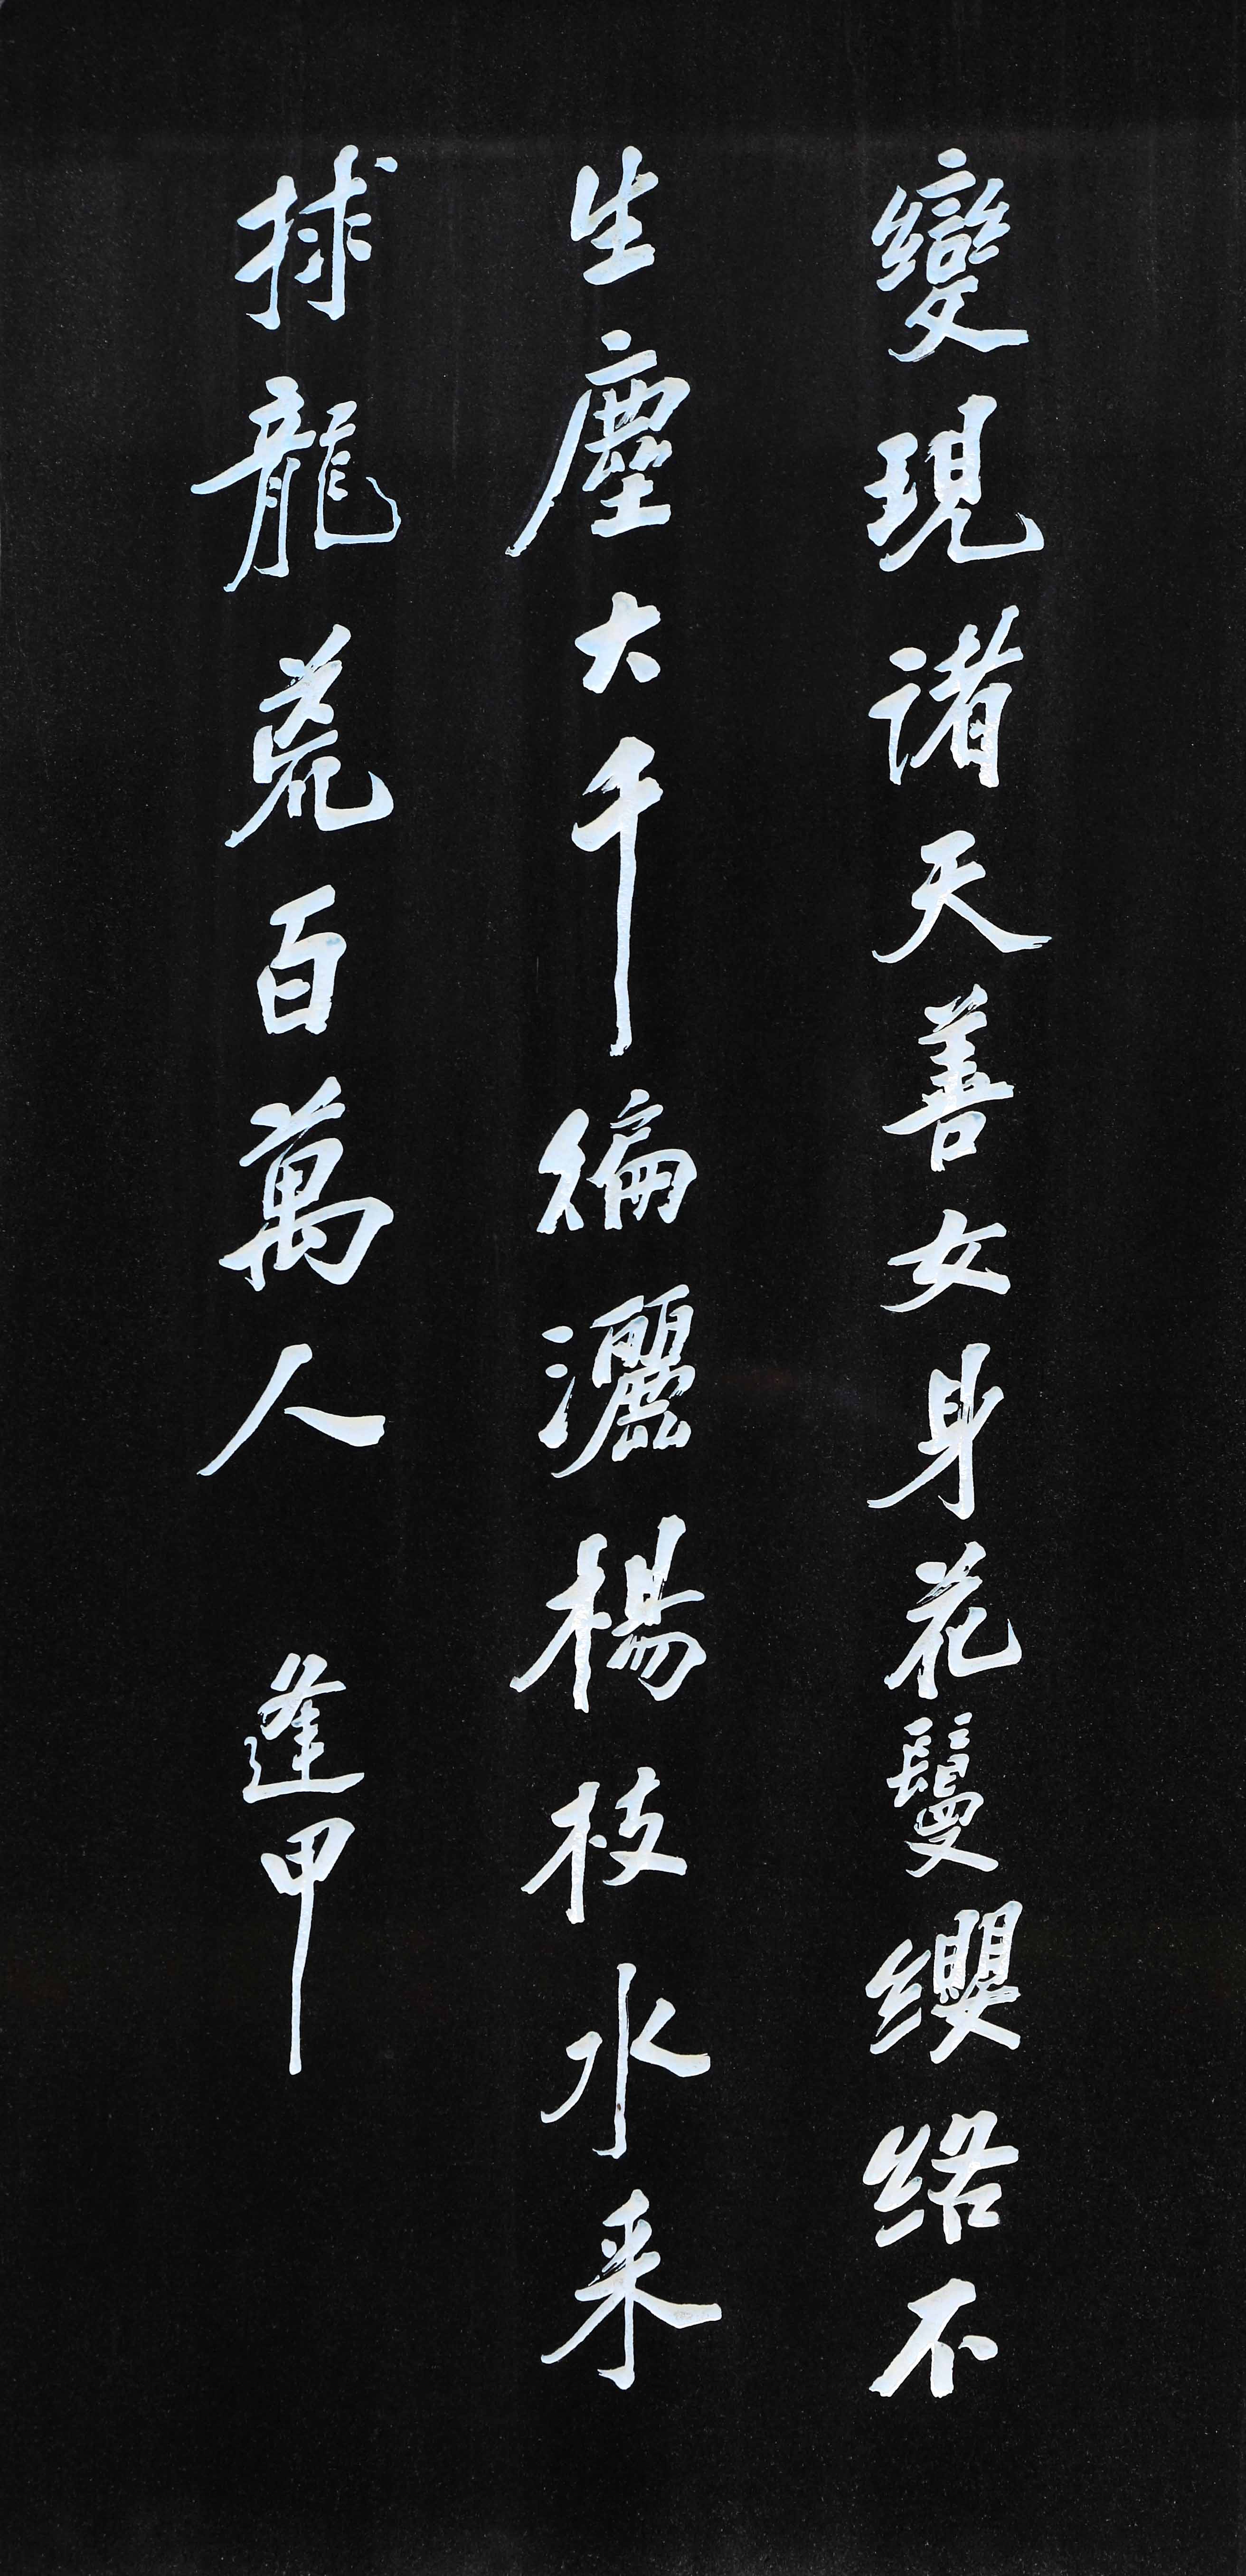 變現諸天善女身花鬘纓絡不
生塵大千徧灑楊枝水来
捄龍荒百萬人 逢甲